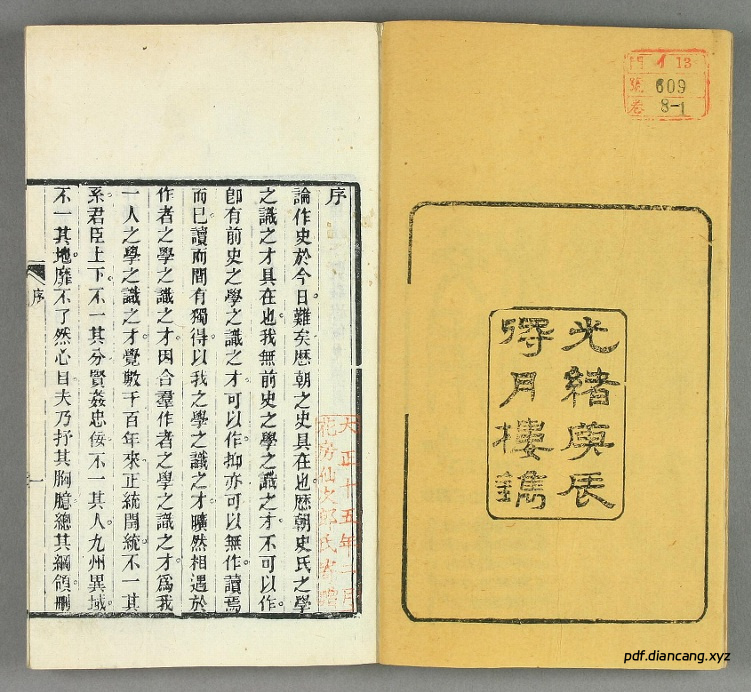 門 イ 13
號 609
卷 8-1
光緒庚辰
得月樓鐫
序
論作史於今日難矣歷朝之史具在也歷朝史氏之學
之識之才具在也我無前史之學之識之才不可以作
卽有前史之學之識之才可以作抑亦可以無作讀焉
而已讀而間有獨得以我之學之識之才曠然相遇於
作者之學之識之才因合羣作者之學之識之才爲我
一人之學之識之才覺數千百年來正統閏統不一其
系君臣上下不一其分賢姦忠佞不一其人九州異域
不一其地靡不了然心目夫乃抒其胸臆總其綱領刪
序
一
大正十五年二月
花房仙次郎氏寄贈
pdf.diancang.xyz